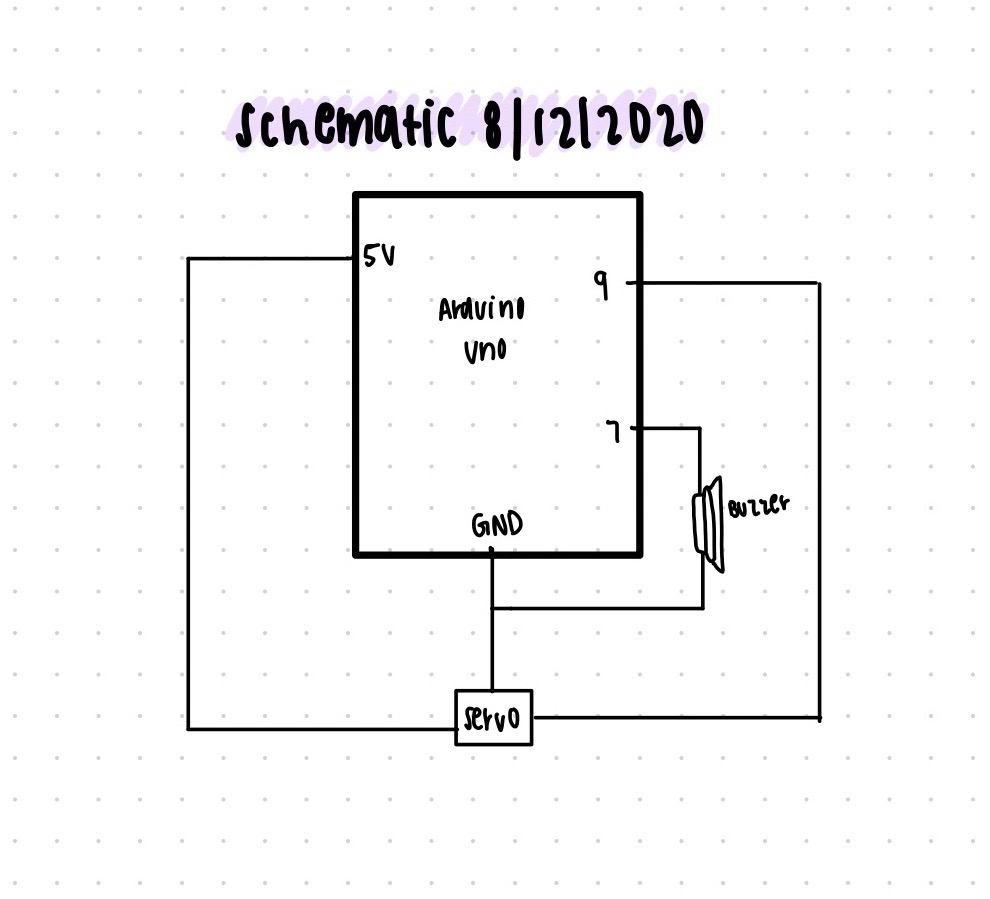 Schematic 8/12/2020
5V
9
Arduino
Uno
7
Buzzer
GND
servo